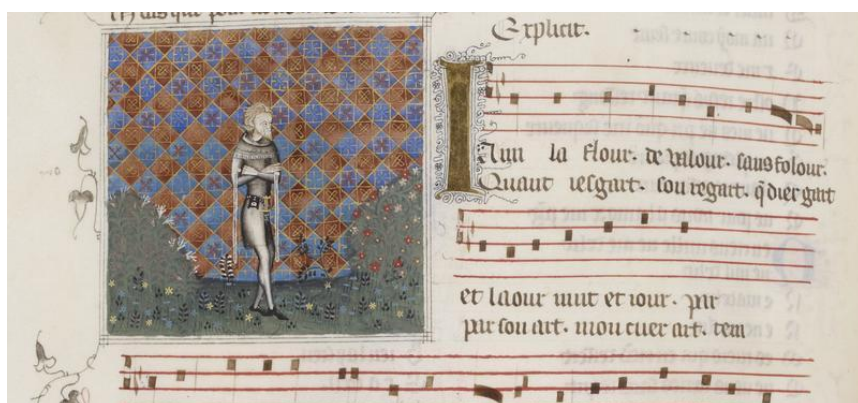 Mais que pour
Explicit.
I Aim la flour. de valour. sans folour.
Quant iesgart. son regart. q̃ dier gart
et laour nuit et iour. par
par son art. mon cuer art. tem